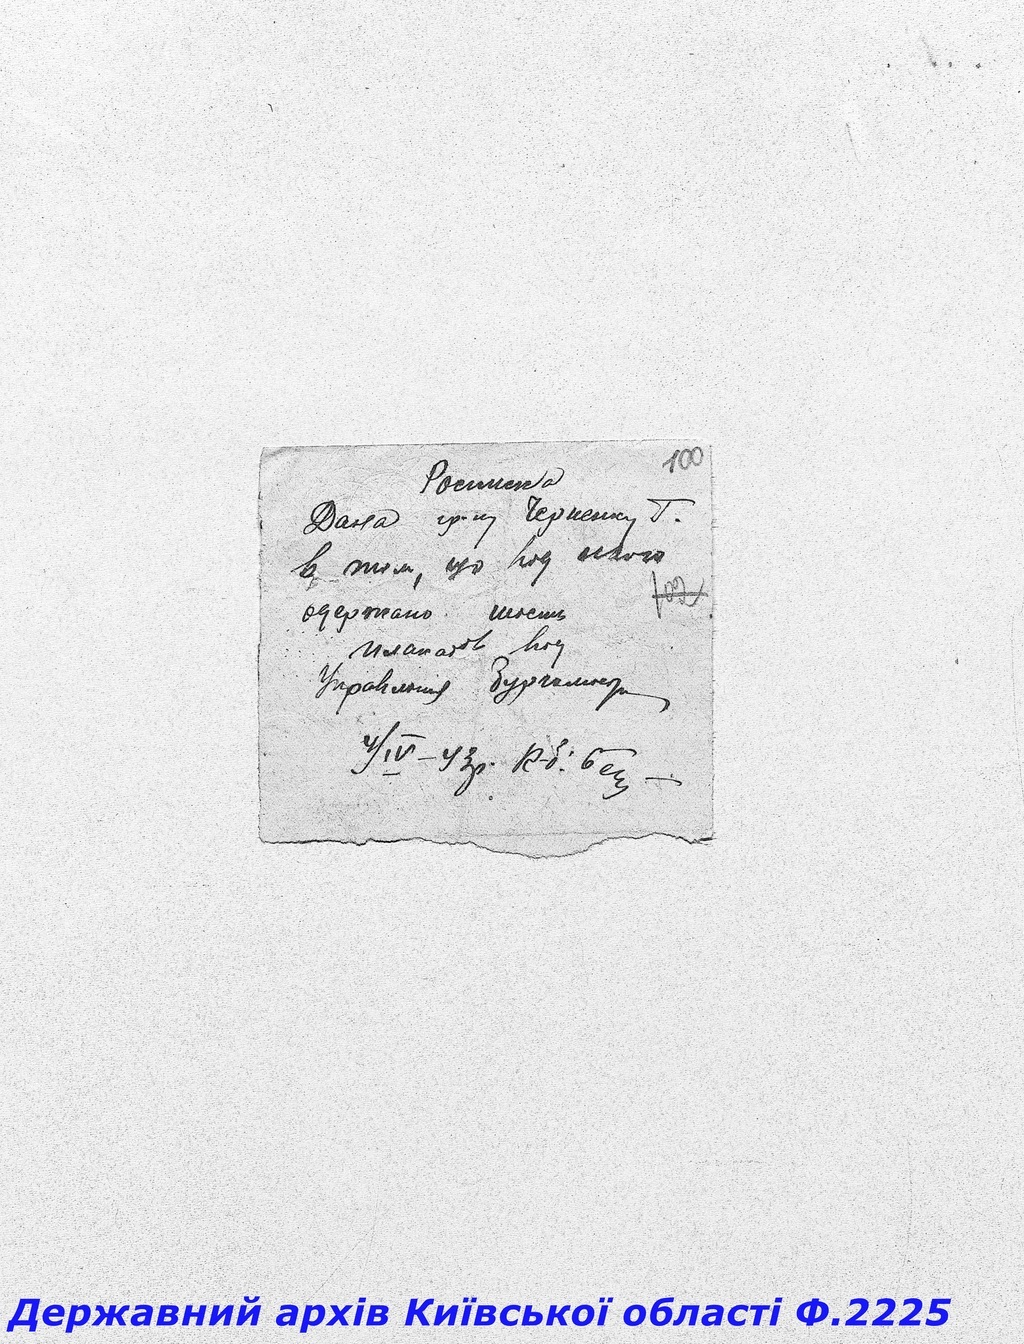 100
Росписка
Дана гр-ну Черненку Г.
в том, що від нього
102
одержано шість
плакатів від
Управління Бургомістра
4/IV-43р.
Державний архів Київської області Ф.2225